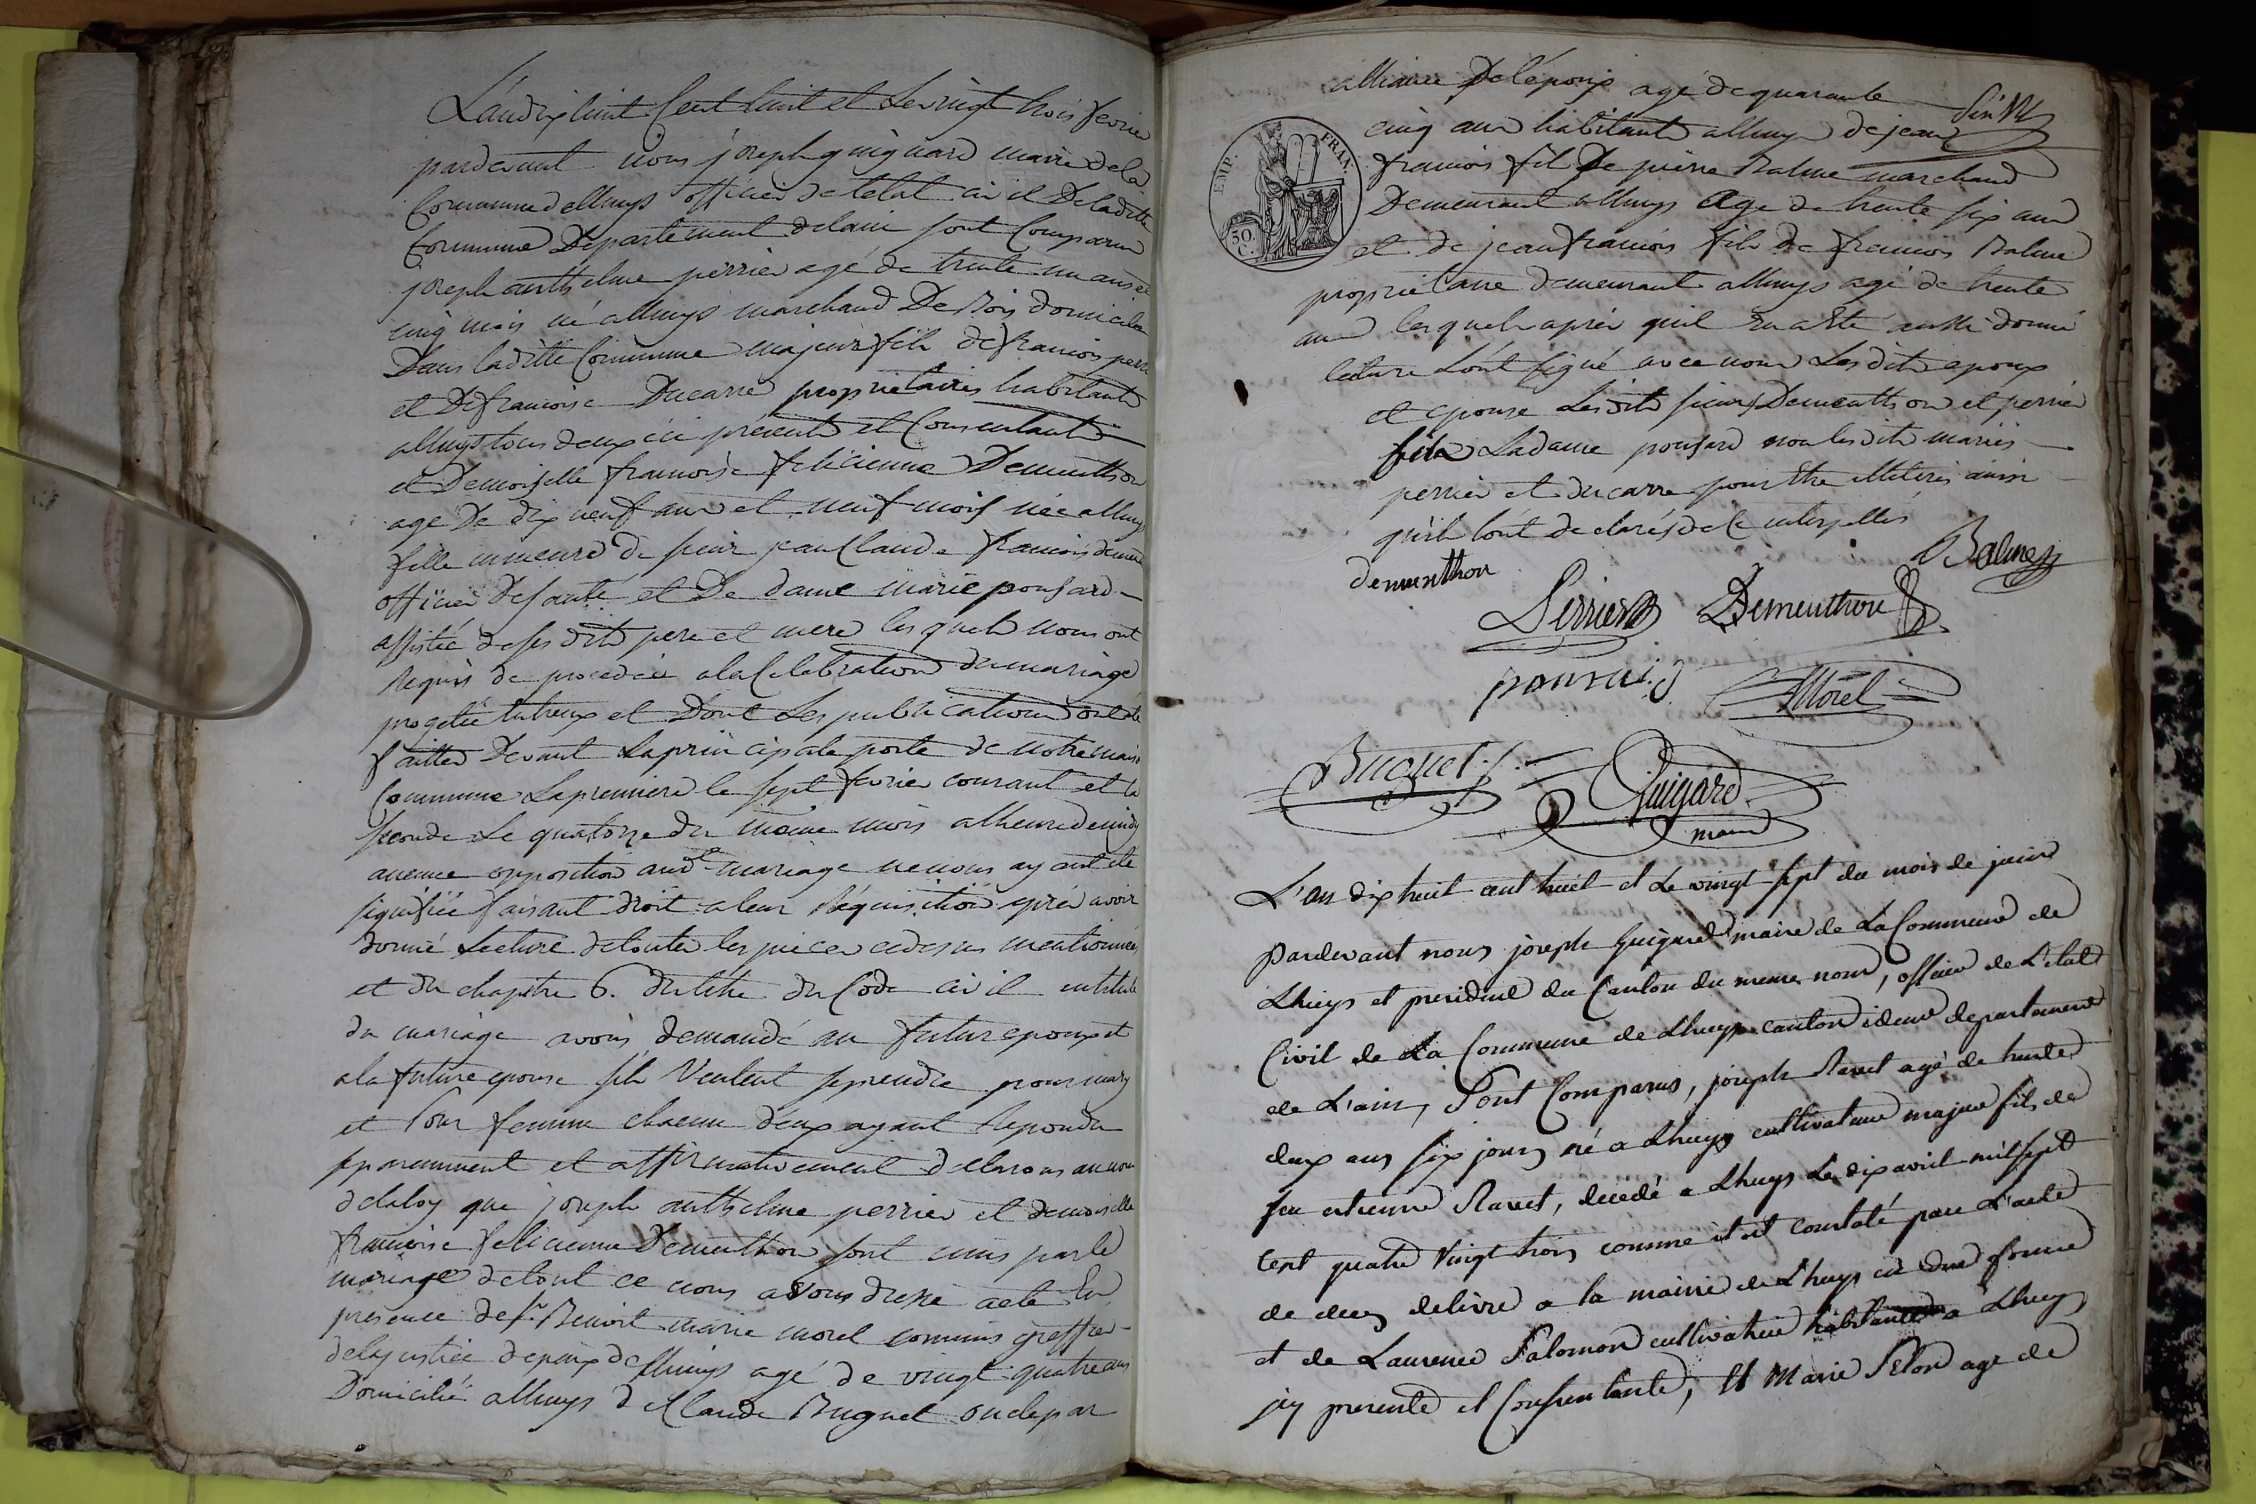 L'an dix huit Cent huit et Le vingt trois fevrier
pardevant nous joseph guiguard maire de la
Commune de Lhuys officier de letat civil De laditte
Commune Departement delain sont Comparu
joseph anthelme perrier agé de trente un ans et
cinq mois né a lhuys marchand De Bois domicilié
Dans laditte Commune majeur fils de francois perrier
et De francoise Ducarre proprietaires habitants
a lhuys tous deux ici presents et Consentants
et Demoiselle francoise felicienne Dementhon
age De dix neuf ans et neuf mois née a lhuys
fille mineure de sieur jean Claude francois dementhon
officier De santé et De dame marie ponsard
assistée de ses dits pere et mere lesquels nous ont
Requis de proceder a la Celebration du mariage
progeté entreux et Dont Les publications ont été
faittes Devant La principale porte de notre maison
Commune La premiere le sept fevrier courant et la
seconde Le quatorze du meme mois a lheure de midy
aucune opposition audt mariage ne nous ayant été
signifiée faisant droit a leur Requisition aprés avoir
donné Lecture de toutes les pieces cidesus mentionnées
et du chapitre 6. du titre du Code civil intitulé
du mariage avons demandé au futur epoux et
a la future epouse sils Veulent se prendre pour mary
et Pour femme chacun d'eux ayant Repondu
separemment et affirmativement declarons au nom
de la loy que joseph anthelme perrier et demoiselle
francoise felicienne Dementhon sont unis par le
mariage de tout ce nous avons dressé acte En
presence de sr Benoit marie morel commis greffier
de la justice de paix de Lhuys agé de vingt quatre ans
Domicilié a lhuys de Claude Buguet oncle par
alliance De l'epoux agé de quarante
cinq ans habitant a lhuys de jean
francois fils De pierre Balme marchand
Demeurant a lhuys Age de trente six ans
et de jean francois fils de francois Balme
proprietaire demeurant a lhuys agé de trente
ans lesquels aprés quil en a Eté aussi donné
lecture L'ont signé avec nous Les dits epoux
et epouse Les dits sieurs Dementhon et perrier
fils Ladame ponsard non les dits mariés
perrier et ducarre pour Etre illiterés ainsi
qu'ils l'ont declarés de ce interpellés
EMP. FRAN.
50 C.
dementhon
Balme
Perrier Dementhon
ponsard
Morel
Buguet
Guigard
maire
L'an dix huit cent huit et Le vingt sept du mois de juin
Pardevant nous joseph Guigard maire de La Commune de
Lhuys et president du Canton du meme nom, officier de L'etat
Civil de La Commune de Lhuys canton idem departement
de L'ain, Sont Comparus, joseph Ravet agé de trente
deux ans six jours né a Lhuys cultivateur majeur fils de
feu etienne Ravet, decedé a Lhuys Le dix avril mil sept
cent quatre vingt trois comme il est constaté par L'acte
de deces delivré a la mairie de Lhuys en due forme
et de Laurence Salomon cultivatrice habitante a Lhuys
jcy presente et Consentante, Et Marie Pelon age de